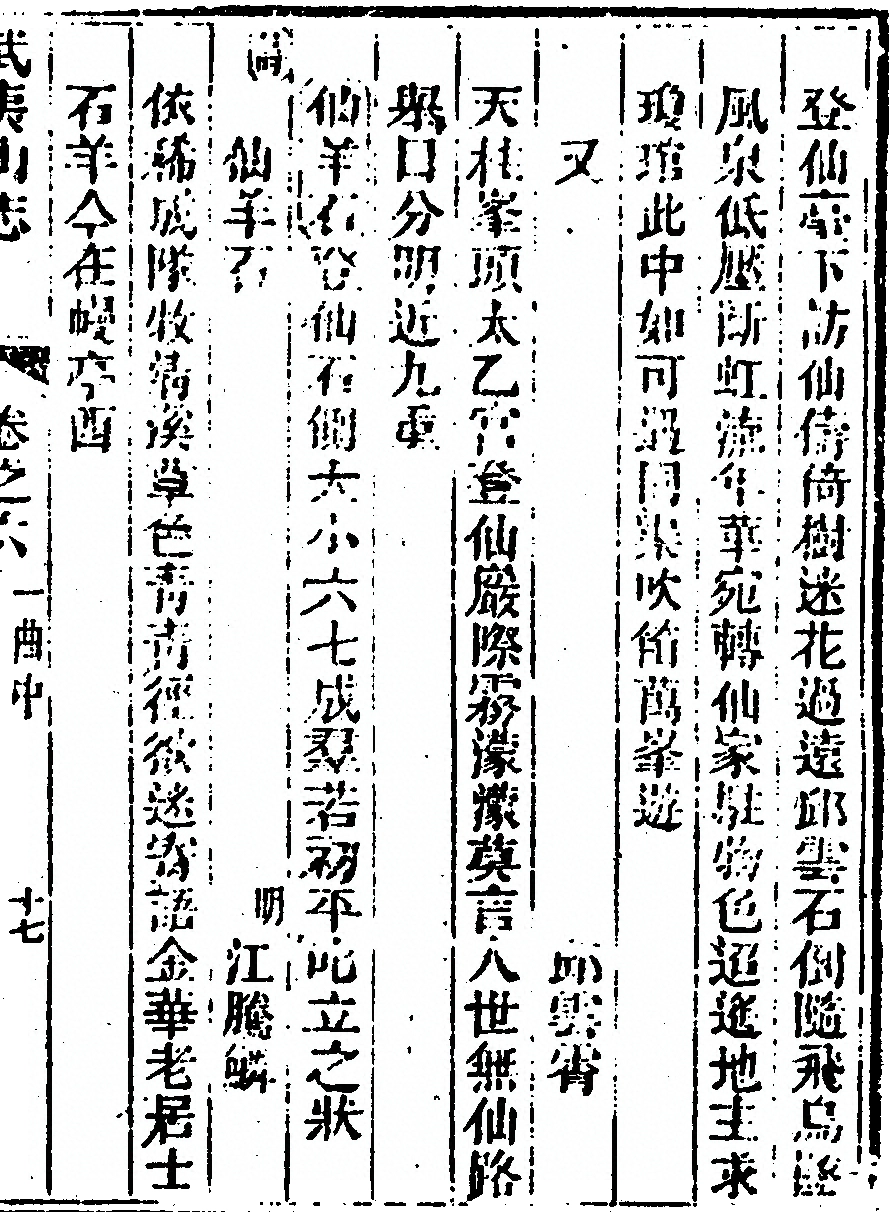 登仙臺下訪仙儔倚樹迷花過遠邱雲石倒隨飛鳥
風泉低壓斷虹流年華宛轉仙家駐物色迢遙地主求
瓊琯此中如可遇同來吹笛萬峯遊
又 邱雲霄
天柱峯頭太乙宮登仙巖際霧濛濛莫言人世無仙路
舉口分明近九重
仙羊石登仙石側大小六七成羣若初平叱立之狀
詩 仙羊石 明 江騰鱗
依稀成隊牧清溪草色青青徑欲迷寄語金華老居士
石羊今在幔亭西
武夷山志 卷之六 一曲中 十七